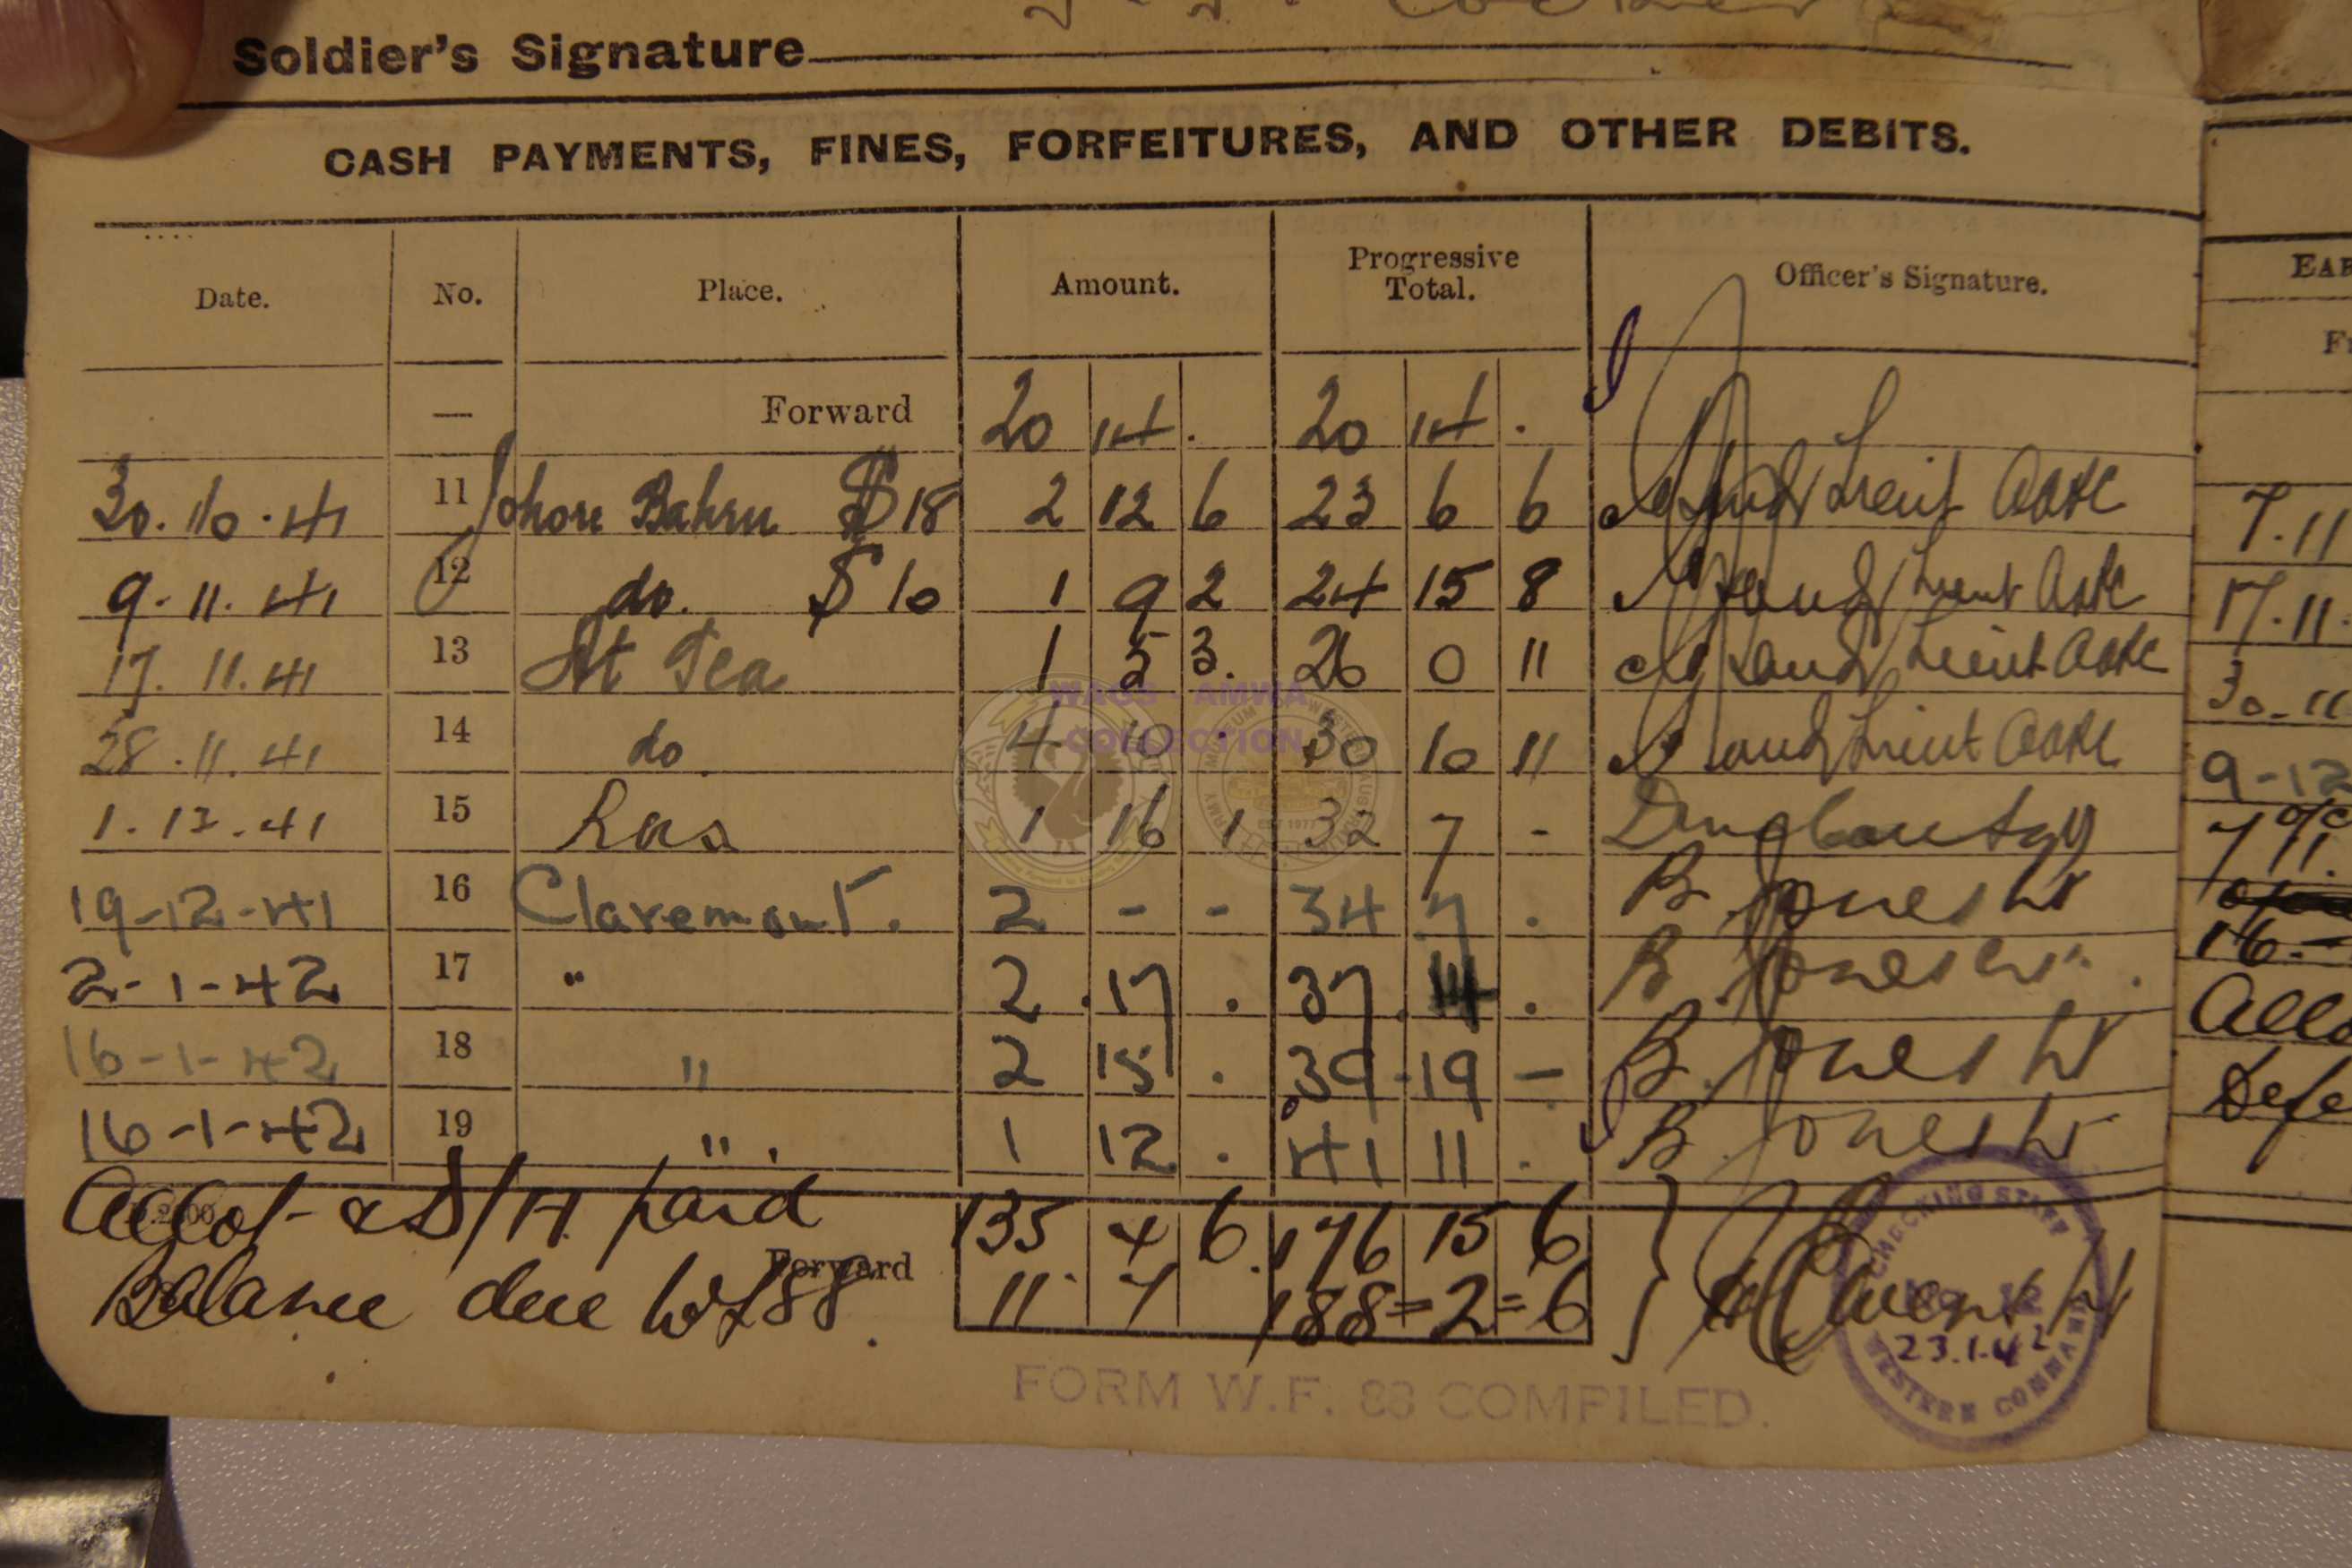 Soldier's Signature
CASH PAYMENTS, FINES, FORFEITURES, AND OTHER DEBITS.
Date. No. Place. Amount. Progressive Total. Officer's Signature.
— Forward 20 14 . 20 14 .
30.10.41 11 Johore Bahru $18 2 12 6 23 6 6 Lieut
9.11.41 12 do. $10 1 9 2 24 15 8 Lieut
17.11.41 13 At Sea 1 5 3. 26 0 11 Lieut
28.11.41 14 do. 4 - 30 10 11 Lieut
1.12.41 15 1 16 1 32 7 -
19-12-41 16 Claremont. 2 - - 34 7 . B. Jones Lt
2-1-42 17 " 2 . 17 . 37 . 14 . B. Jones Lt.
16-1-42 18 " 2 15 . 39 - 19 - B. Jones Lt
16-1-42 19 " . 1 12 . 41 11 . B. Jones Lt
Allot & D/H. paid 135 4 6. 176 15 6
Forward
Balance due W F 88. 11. 7 188 = 2 = 6
CHECKING STAFF
23.1.42
WESTERN COMMAND
FORM W.F. 88 COMPILED.
WAGS - AMWA
COLLECTION
EAR
7.11
17.11.
30.11
9-12
16-
Defe